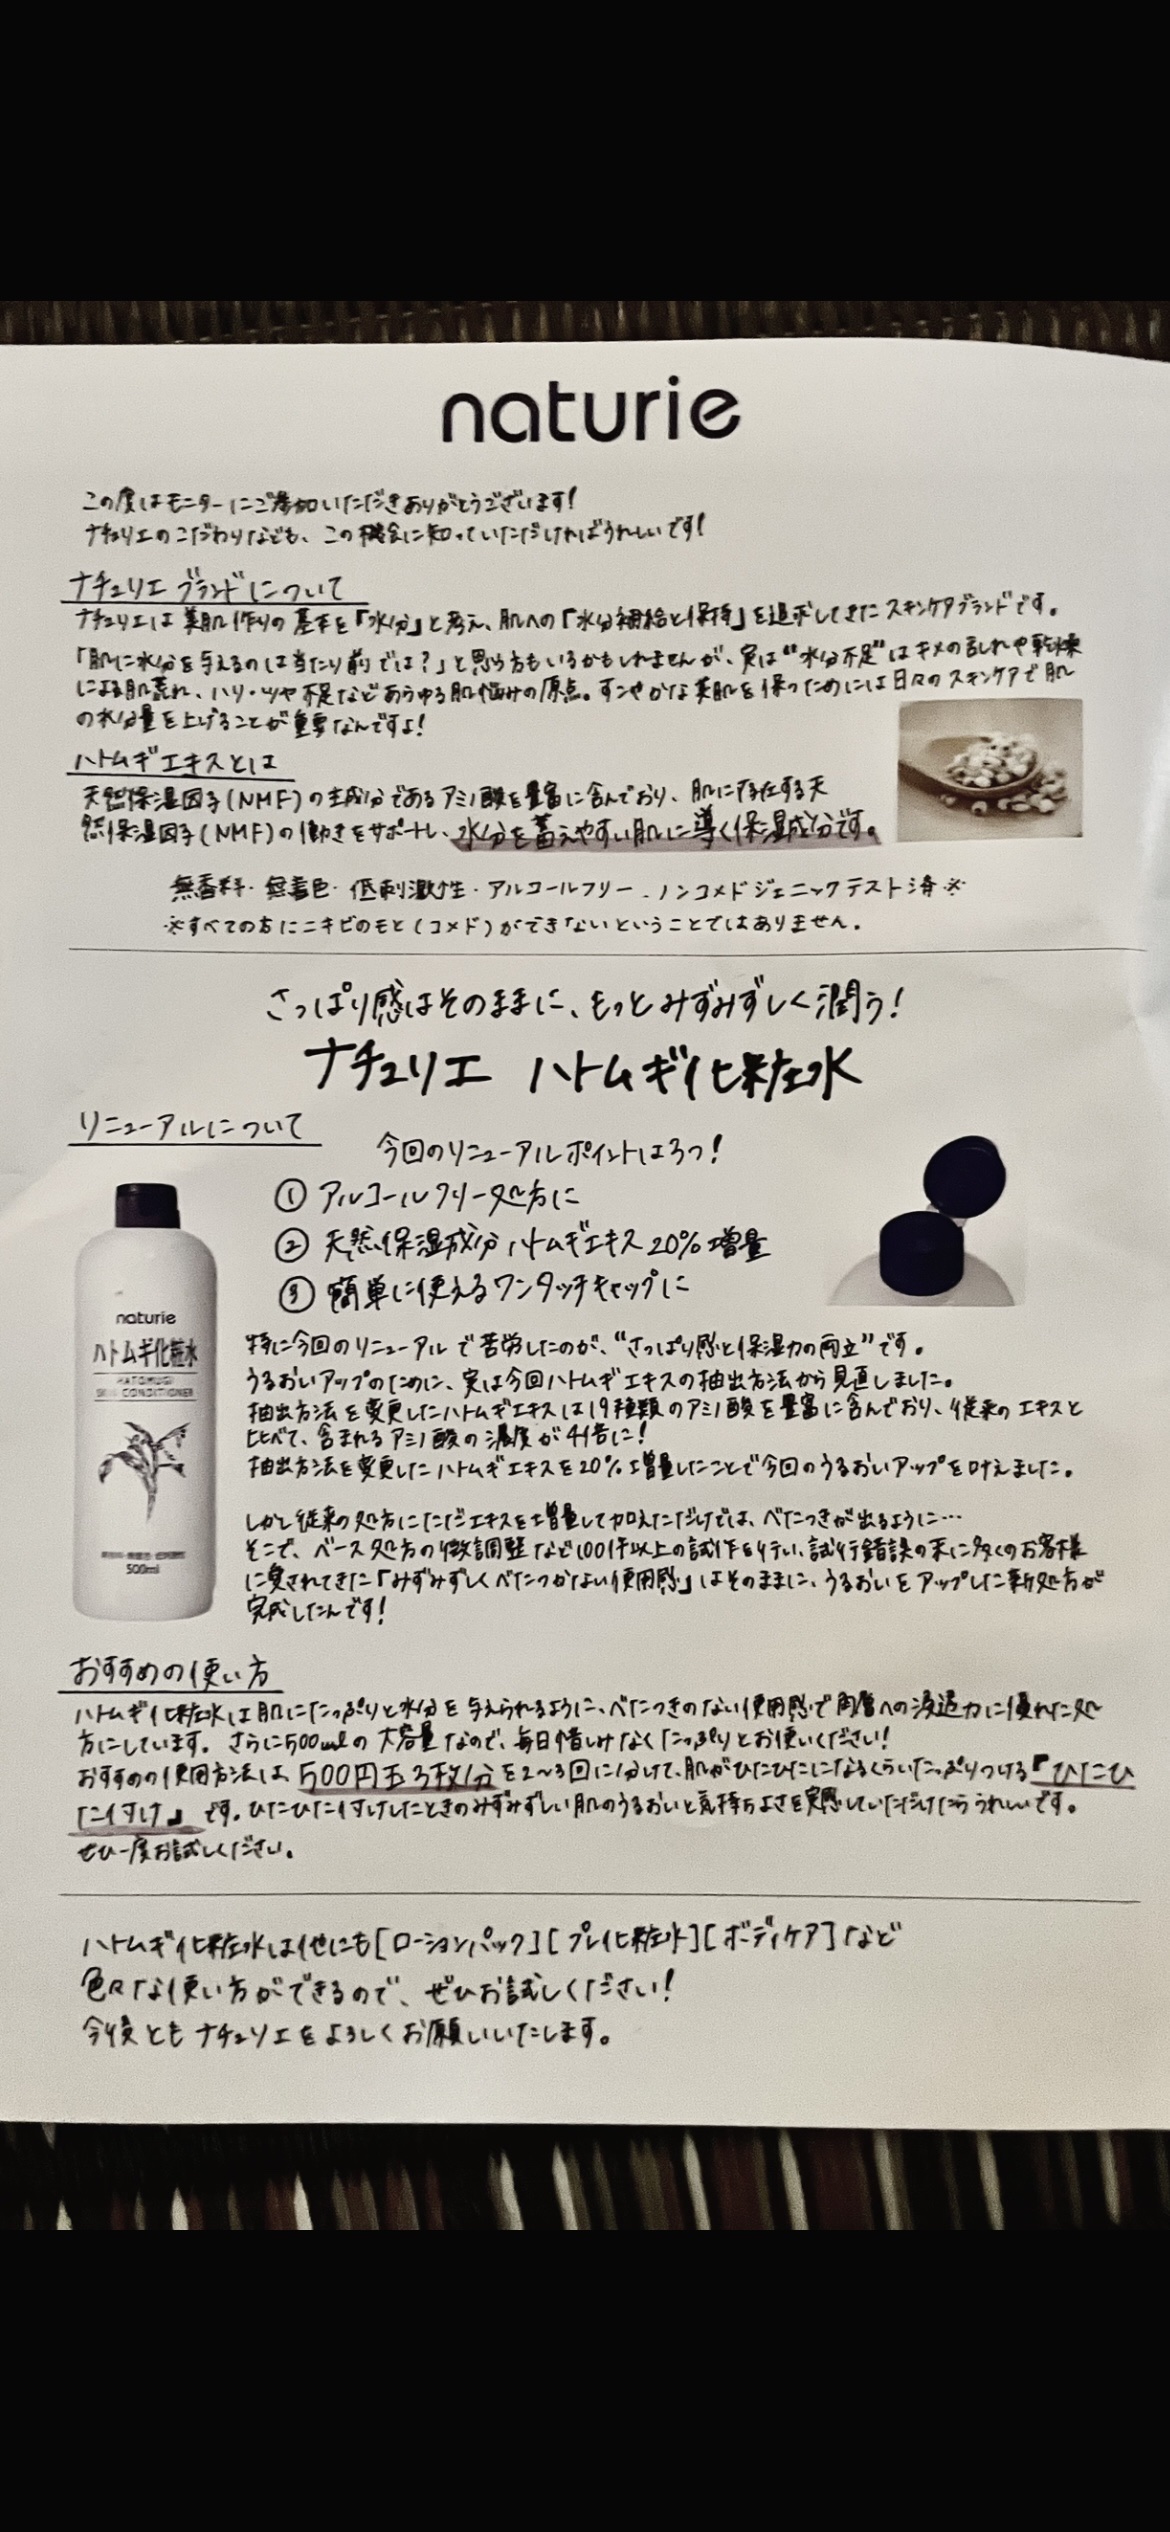 naturie
この度はモニターにご参加いただきありがとうございます!
ナチュリエのこだわりなども、この機会に知っていただければうれしいです!
ナチュリエ ブランドについて
ナチュリエは美肌作りの基本を「水分」と考え、肌への「水分補給と保持」を追求してきたスキンケアブランドです。
「肌に水分を与えるのは当たり前では?」と思う方もいるかもしれませんが、実は“水分不足”はキメの乱れや乾燥
による肌荒れ、ハリ・ツヤ不足などあらゆる肌悩みの原点。すこやかな美肌を保つためには日々のスキンケアで肌
の水分量を上げることが重要なんですよ!
ハトムギエキスとは
天然保湿因子(NMF)の主成分であるアミノ酸を豊富に含んでおり、肌に存在する天
然保湿因子(NMF)の働きをサポートし、水分を蓄えやすい肌に導く保湿成分です。
無香料・無着色・低刺激性・アルコールフリー・ノンコメドジェニックテスト済※
※すべての方にニキビのもと(コメド)ができないということではありません。
さっぱり感はそのままに、もっとみずみずしく潤う!
ナチュリエ ハトムギ化粧水
リニューアルについて
今回のリニューアルポイントは3つ!
① アルコールフリー処方に
② 天然保湿成分ハトムギエキス20%増量
③ 簡単に使えるワンタッチキャップに
naturie
ハトムギ化粧水
HATOMUGI
SKIN CONDITIONER
500ml
特に今回のリニューアルで苦労したのが、“さっぱり感と保湿力の両立”です。
うるおいアップのために、実は今回ハトムギエキスの抽出方法から見直しました。
抽出方法を変更したハトムギエキスは19種類のアミノ酸を豊富に含んでおり、従来のエキスと
比べて、含まれるアミノ酸の濃度が4倍に!
抽出方法を変更したハトムギエキスを20%増量したことで今回のうるおいアップを叶えました。
しかし従来の処方にただエキスを増量して加えただけでは、べたつきが出るように…
そこで、ベース処方の微調整など100件以上の試作を行い、試行錯誤の末に多くのお客様
に愛されてきた「みずみずしくべたつかない使用感」はそのままに、うるおいをアップした新処方が
完成したんです!
おすすめの使い方
ハトムギ化粧水は肌にたっぷりと水分を与えられるように、べたつきのない使用感で角層への浸透力に優れた処
方にしています。さらに500mlの大容量なので、毎日惜しみなくたっぷりとお使いください!
おすすめの使用方法は、500円玉3枚分を2~3回に分けて、肌がひたひたになるくらいたっぷりつける『ひたひ
た付け』です。ひたひた付けしたときのみずみずしい肌のうるおいと気持ちよさを実感していただけたらうれしいです。
ぜひ一度お試しください。
ハトムギ化粧水は他にも[ローションパック][プレ化粧水][ボディケア]など
色々な使い方ができるので、ぜひお試しください!
今後ともナチュリエをよろしくお願いいたします。